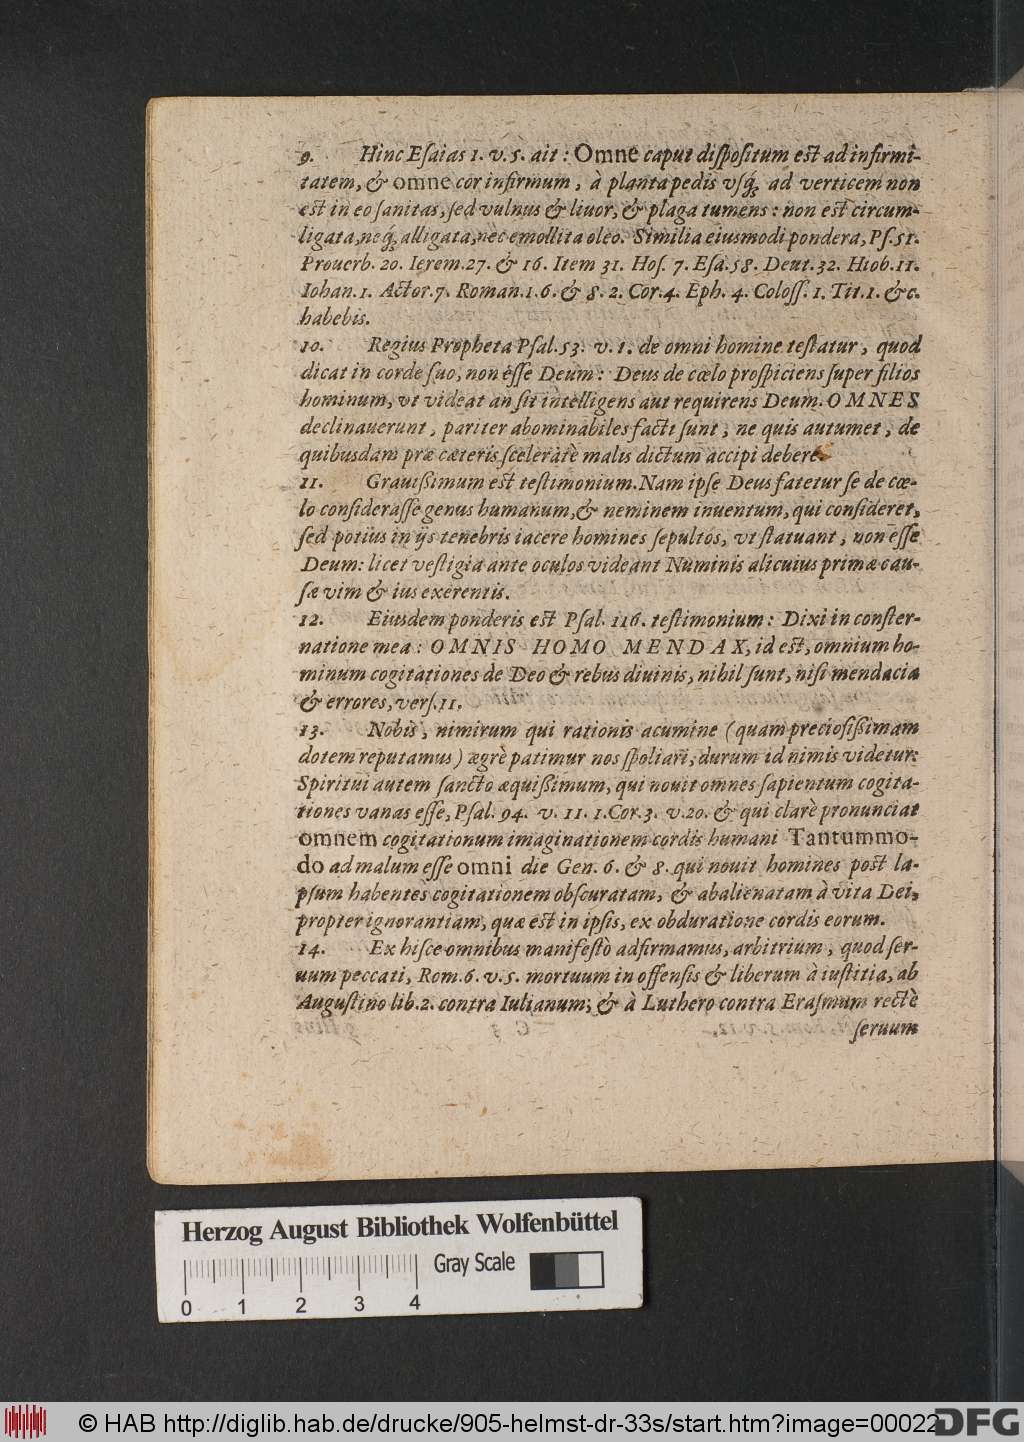 9. Hinc Eſaias 1. v. 5. ait : Omne caput diſpoſitum eſt ad infirmi-
tatem, & omne cor infirmum, à planta pedis vſq́; ad verticem non
eſt in eo ſanitas, ſed vulnus & liuor, & plaga tumens : non eſt circum-
ligata, neq́; alligata, nec emollita oleo. Similia eiusmodi pondera, Pſ. 51.
Prouerb. 20. Ierem. 27. & 16. Item 31. Hoſ. 7. Eſa. 58. Deut. 32. Hiob. 11.
Iohan. 1. Actor. 7. Roman. 1. 6. & 8. 2. Cor. 4. Eph. 4. Coloſſ. 1. Tit. 1. &c.
habebis.
10. Regius Propheta Pſal. 53. v. 1. de omni homine teſtatur, quod
dicat in corde ſuo, non eſſe Deum : Deus de cœlo proſpiciens ſuper filios
hominum, vt videat an ſit intelligens aut requirens Deum. OMNES
declinauerunt, pariter abominabiles facti ſunt, ne quis autumet, de
quibusdam præ cæteris ſceleratè malis dictum accipi debere.
11. Grauiſſimum eſt teſtimonium. Nam ipſe Deus fatetur ſe de cœ-
lo conſideraſſe genus humanum, & neminem inuentum, qui conſideret,
ſed potius in ijs tenebris iacere homines ſepultos, vt ſtatuant, non eſſe
Deum: licet veſtigia ante oculos videant Numinis alicuius primæ cau-
ſæ vim & ius exerentis.
12. Eiusdem ponderis eſt Pſal. 116. teſtimonium : Dixi in conſter-
natione mea : OMNIS HOMO MENDAX, id eſt, omnium ho-
minum cogitationes de Deo & rebus diuinis, nihil ſunt, niſi mendacia
& errores, verſ. 11.
13. Nobis, nimirum qui rationis acumine (quam precioſiſſimam
dotem reputamus) ægrè patimur nos ſpoliari, durum id nimis videtur:
Spiritui autem ſancto æquiſſimum, qui nouit omnes ſapientum cogita-
tiones vanas eſſe, Pſal. 94. v. 11. 1. Cor. 3. v. 20. & qui clarè pronunciat
omnem cogitationum imaginationem cordis humani Tantummo-
do ad malum eſſe omni die Gen. 6. & 8. qui nouit homines poſt la-
pſum habentes cogitationem obſcuratam, & abalienatam à vita Dei,
propter ignorantiam, quæ eſt in ipſis, ex obduratione cordis eorum.
14. Ex hiſce omnibus manifeſtò adfirmamus, arbitrium, quod ſer-
uum peccati, Rom. 6. v. 5. mortuum in offenſis & liberum à iuſtitia, ab
Auguſtino lib. 2. contra Iulianum; & à Luthero contra Eraſmum rectè
ſeruum
Herzog August Bibliothek Wolfenbüttel
Gray Scale
0 1 2 3 4
© HAB http://diglib.hab.de/drucke/905-helmst-dr-33s/start.htm?image=00022
DFG